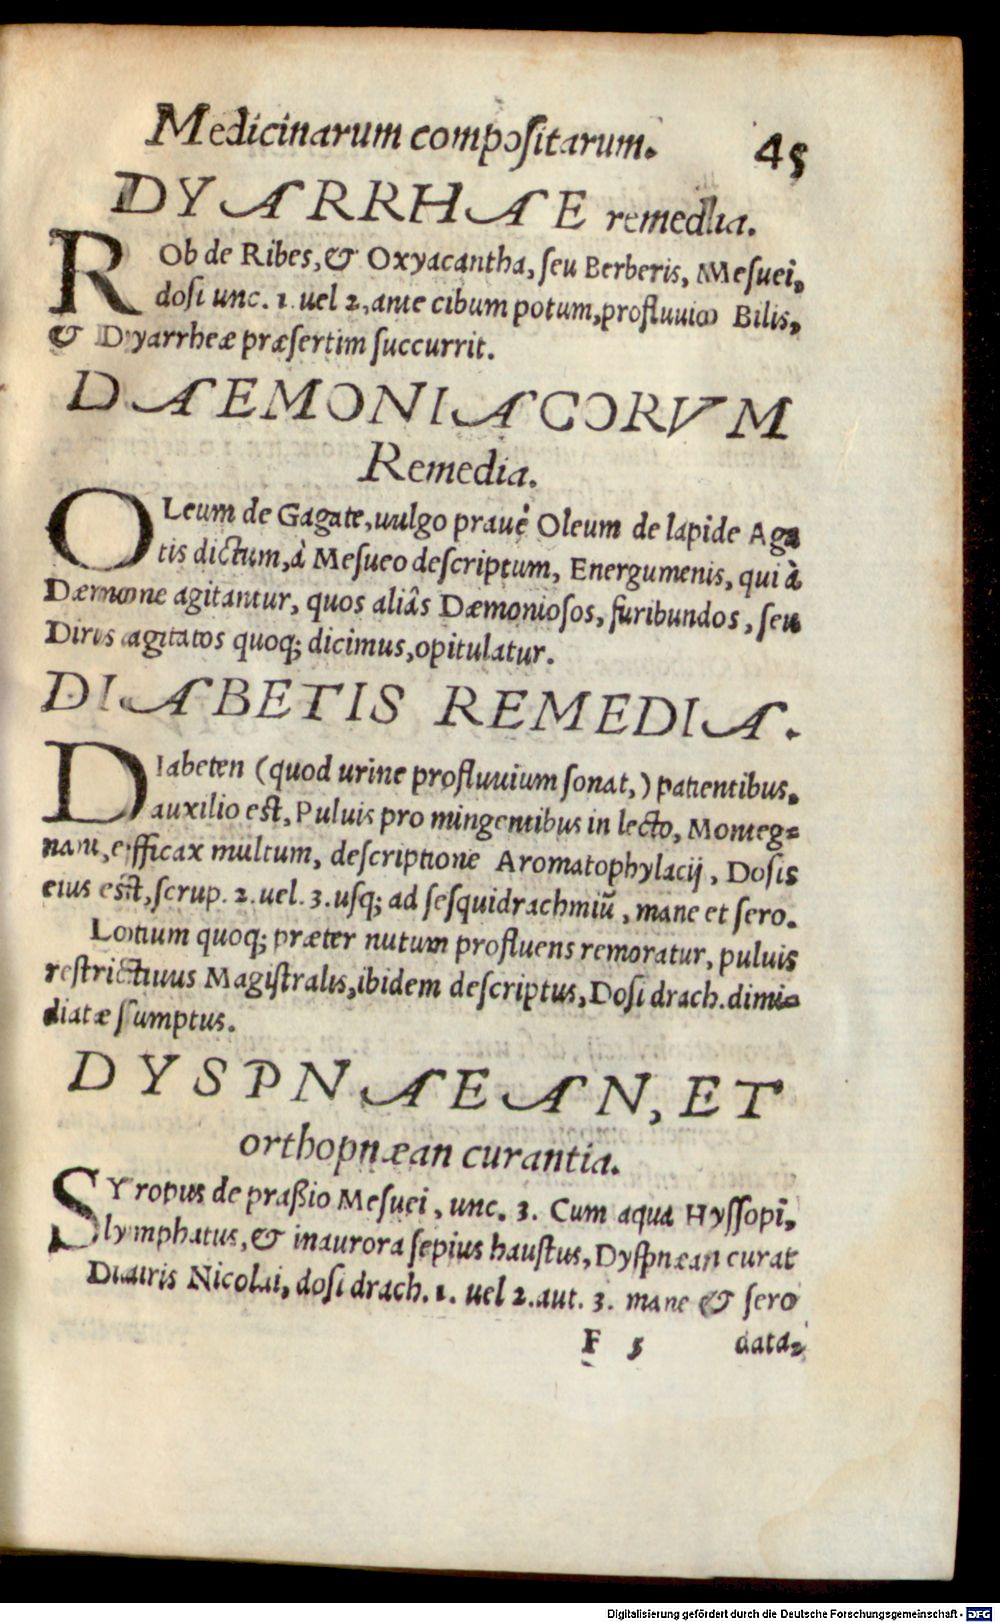 Medicinarum compositarum. 45
DYARRHAE remedia.
ROb de Ribes, & Oxyacantha, seu Berberis, Mesuei,
dosi unc. 1. uel 2., ante cibum potum, profluuio Bilis,
& Dyarrheæ præsertim succurrit.
DAEMONIACORVM
Remedia.
OLeum de Gagate, uulgo prauè Oleum de lapide Aga
tis dictum, à Mesueo descriptum, Energumenis, qui à
Dæmone agitantur, quos aliâs Dæmoniosos, furibundos, seu
Diris agitatos quoq; dicimus, opitulatur.
DIABETIS REMEDIA.
DIabeten (quod urine profluuium sonat,) patientibus,
auxilio est, Puluis pro mingentibus in lecto, Monteg=
nani, efficax multum, descriptione Aromatophylacij, Dosis
eius est, scrup. 2. uel. 3. usq; ad sesquidrachmiū, mane et sero.
Lotium quoq; præter nutum profluens remoratur, puluis
restrictiuus Magistralis, ibidem descriptus, Dosi drach. dimi=
diatæ sumptus.
DYSPNAEAN, ET
orthopnæan curantia.
SYropus de praßio Mesuei, unc. 3. Cum aqua Hyssopi,
lymphatus, & in aurora sepius haustus, Dyspnæan curat
Diairis Nicolai, dosi drach. 1. uel 2. aut. 3. mane & sero
F 5 data,
Digitalisierung gefördert durch die Deutsche Forschungsgemeinschaft - DFG